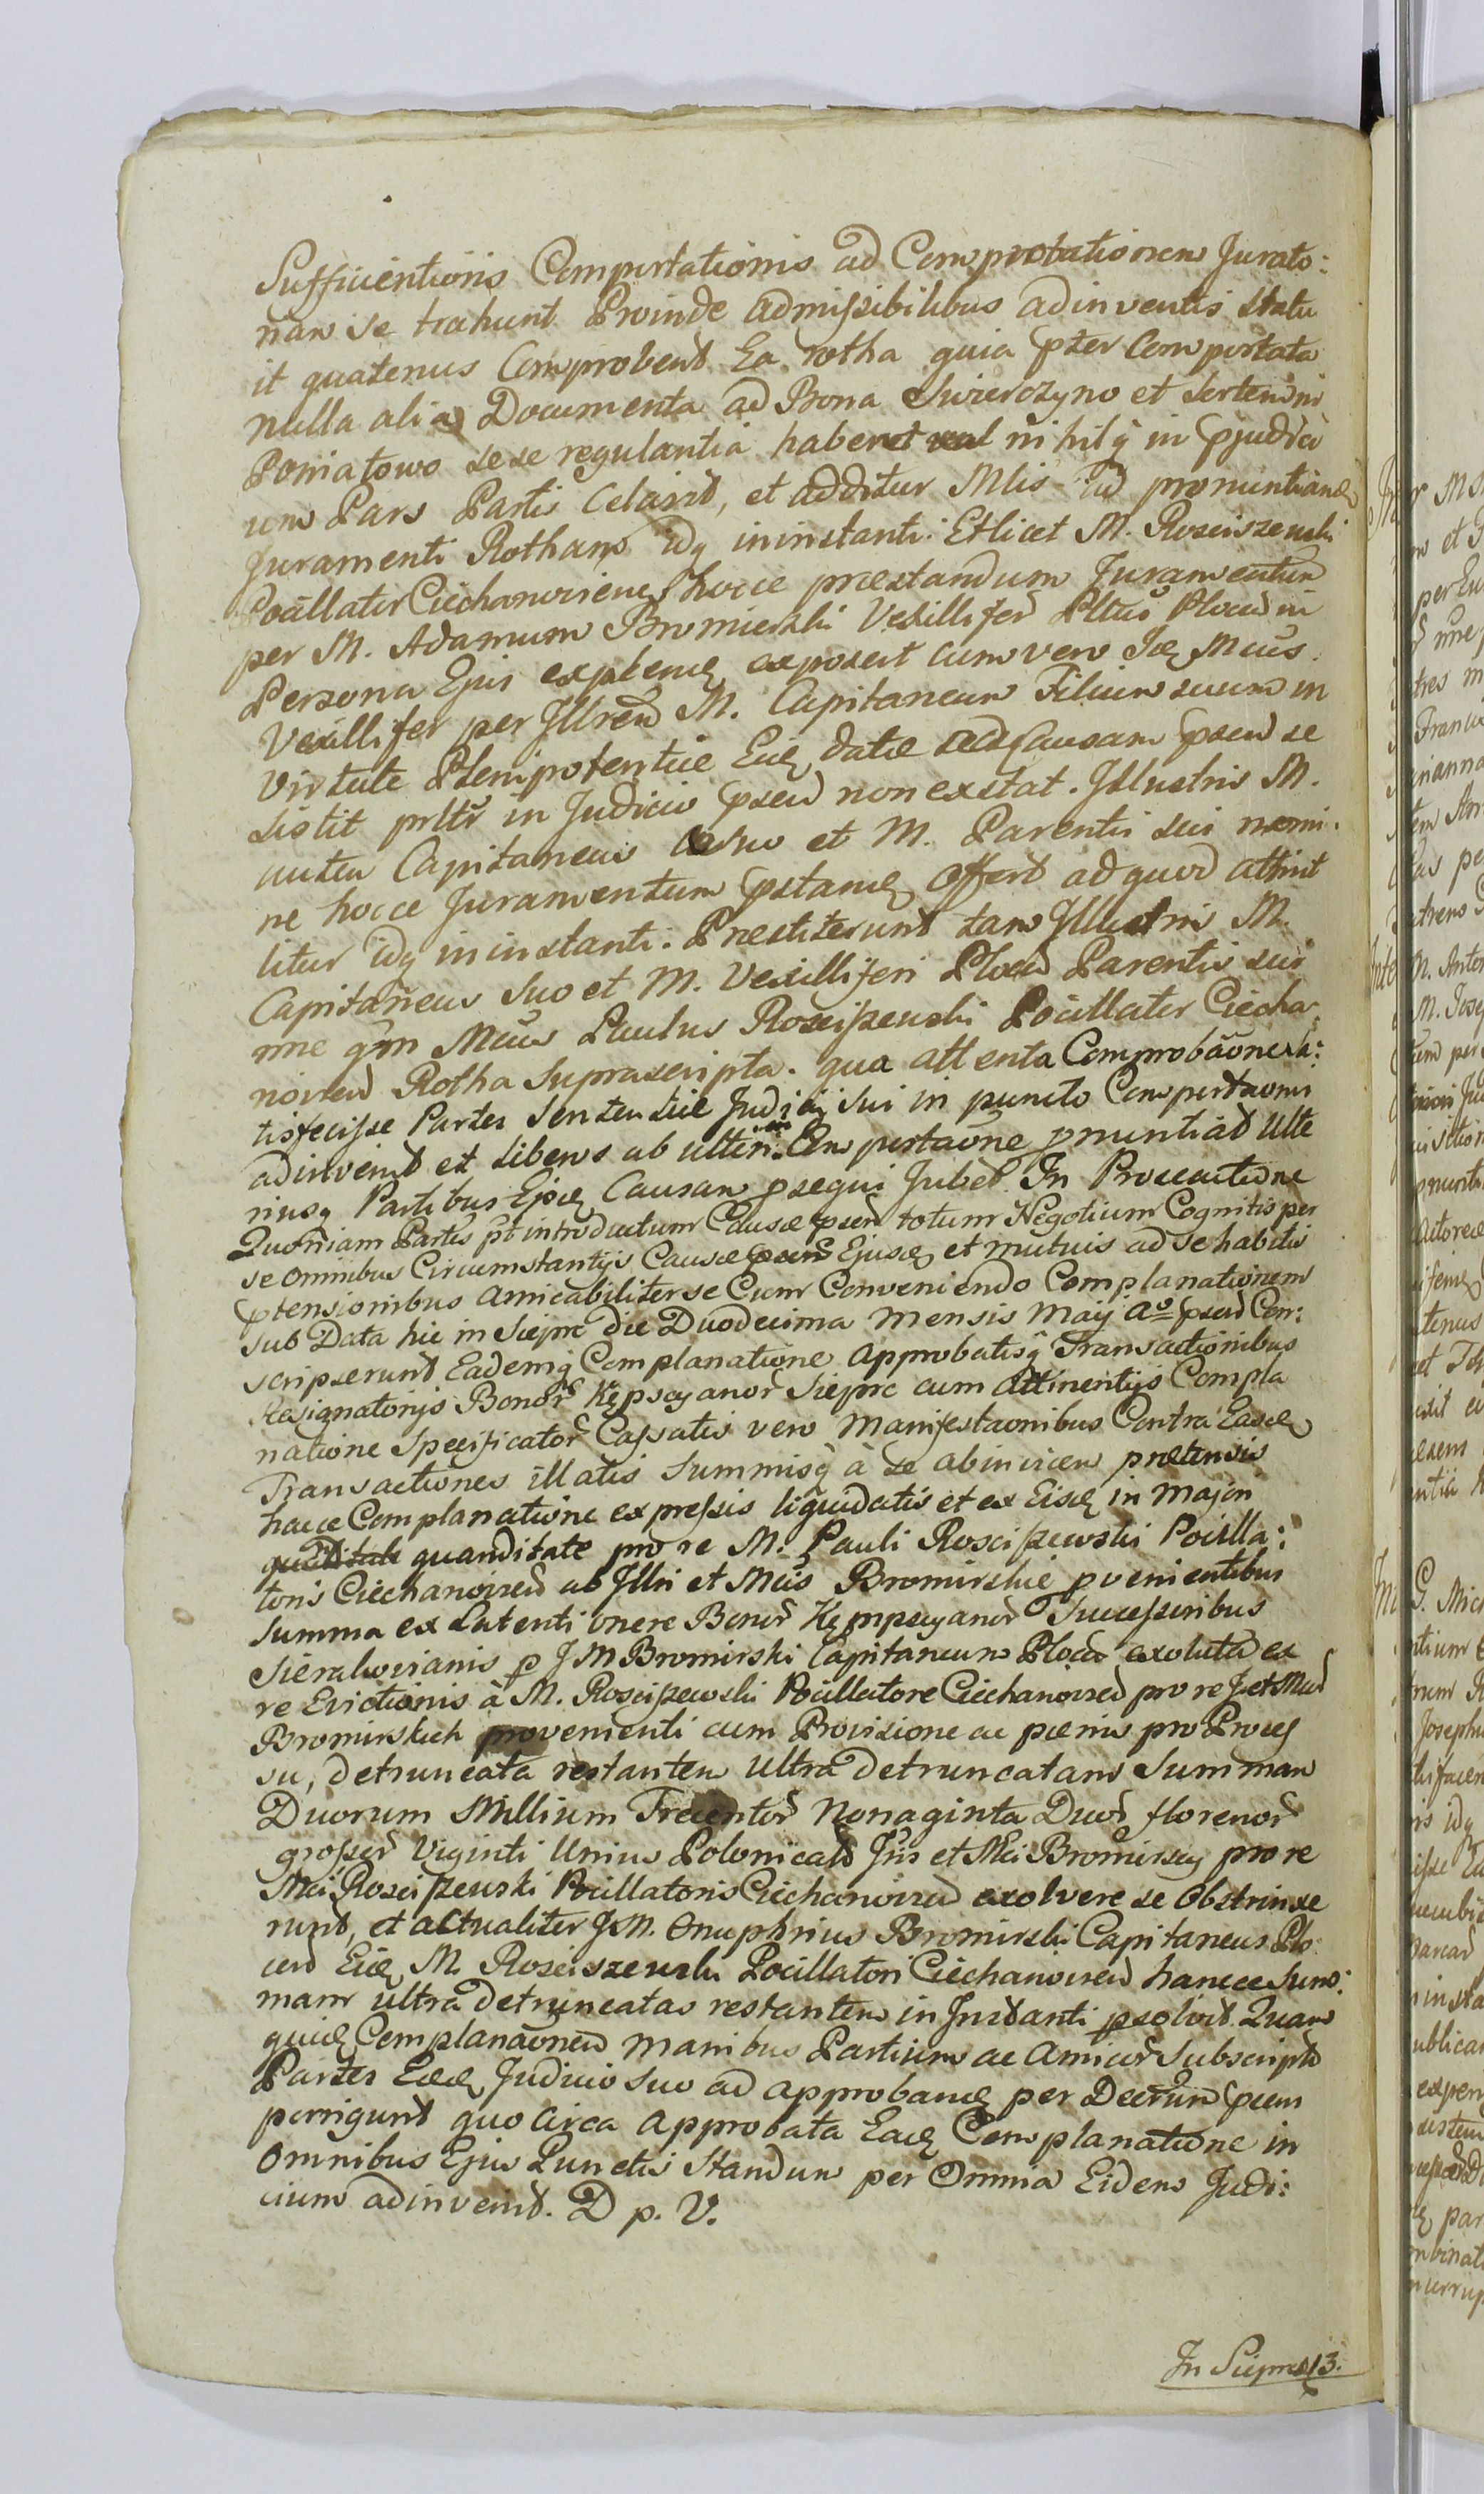 Sufficientioris Comportationis ad Comprobationem Jurato:
riam se trahunt Proinde admissibilibus adinventis statu
it quatenus Comprobent Ea rotha quia pter Comportata
nulla alia Documenta ad Bona Swierczyno et Sortem in
Poniatowo sese regulantia haberet vel nihilq in pjudici
um Pars Partis Celavit, et additur Mlis ad pronuntiand
Juramenti Rotham idq ininstanti. Etlicet M. Rosciszewski
Pocillator Ciechanoviens hocce præstandum Juramentum
per M. Adamum Bromierski Vexillifer Pltus Plocen in
Persona Ejus explend exposcit cum vero Id Mcus
Vexillifer per Illrem M. Capitaneum Filium suum in
Virtute Plenipotentiæ Eid datæ ad Causam psen se
sistit prltr in Judicio psen non exstat. Illustris M.
autem Capitaneus suo et M. Parentis sui nomi:
ne hocce Juramentum pstand offert ad quod attint
litur idq in instanti. Præstiterunt tam Illustris M.
Capitaneus Suo et M. Vexilliferi Plocen Parentis sui
nne qm Mcus Paulus Rosciszewski Pocillator Ciecha:
novien Rotha suprascripta. qua attenta Comprobaone sa:
tisfecisse Partes Sententiæ Judicij Sui in puncto Comportaonis
adinvenit et liberos ab ulteriori Comportaone pnuntiat Ulte
riusq Partibus Ejsd Causam psequi Jubet. In Procecutione
Quoniam Partes pt introductum Causæ psen totum Negotium Cognitis per
se omnibus Circumstantijs Causæ psen Ejusd et mutuis ad se habitis
ptensionibus amicabiliter se Cum Conveniendo Complanationem
sub Data hic in Sieprc die Duodecima Mensis Maij ao psen Con:
scripserunt Eademq Complanatione approbatisq Transactionibus
Resignatorijs Bonor Kępscyanor Sieprc cum attinentijs Compla
natione Specificator Cassatis vero Manifestaonibus Contra Easd
Transactiones illatis Summisq à se abinvicem prætensis
hacce Complanatione expressis liquidatis et ex Eisd in majori
quantitate pro re M. Pauli Rosciszewski Pocilla:
toris Ciechanovien ab Illri et Mcis Bromirskie pvenientibus
Summa ex Latenti onere Bonor Kęmpscyanor Successoribus
Sierakovianis p J M Bromirski Capitaneum Plocen exoluta ex
re Evictionis à M. Rosciszewski Pocillatore Ciechanovien pro re J et Mcor
Bromirskich provenienti cum Provisione ac pœnis pro Proces
su, detruncata restantem Ultra detruncatam Summam
Duorum Millium Trecentor Nonaginta Duor florenor
grossor Viginti Unius Polonicali Jris et Mci Bromirscy pro re
Mci Rosciszewski Pocillatoris Ciechanovien exolvere se Obstrinxe
runt, et actualiter J M. Onuphrius Bromirski Capitaneus Plo:
cen Eid M. Rosciszewski Pocillatori Ciechanovien hancce Sum:
mam ultra detruncatas restantem in Instanti psolvit. Quam
quid Complanaonem manibus Partium ac Amicor Subscript
Partes Eæd Judicio Suo ad approband per Decrtum psens
porrigunt quo circa approbata Ead Complanatione in
Omnibus Ejus Punctis Standum per Omnia Eidem Judi:
cium adinvenit. D p. V.
In Sieprc 13.